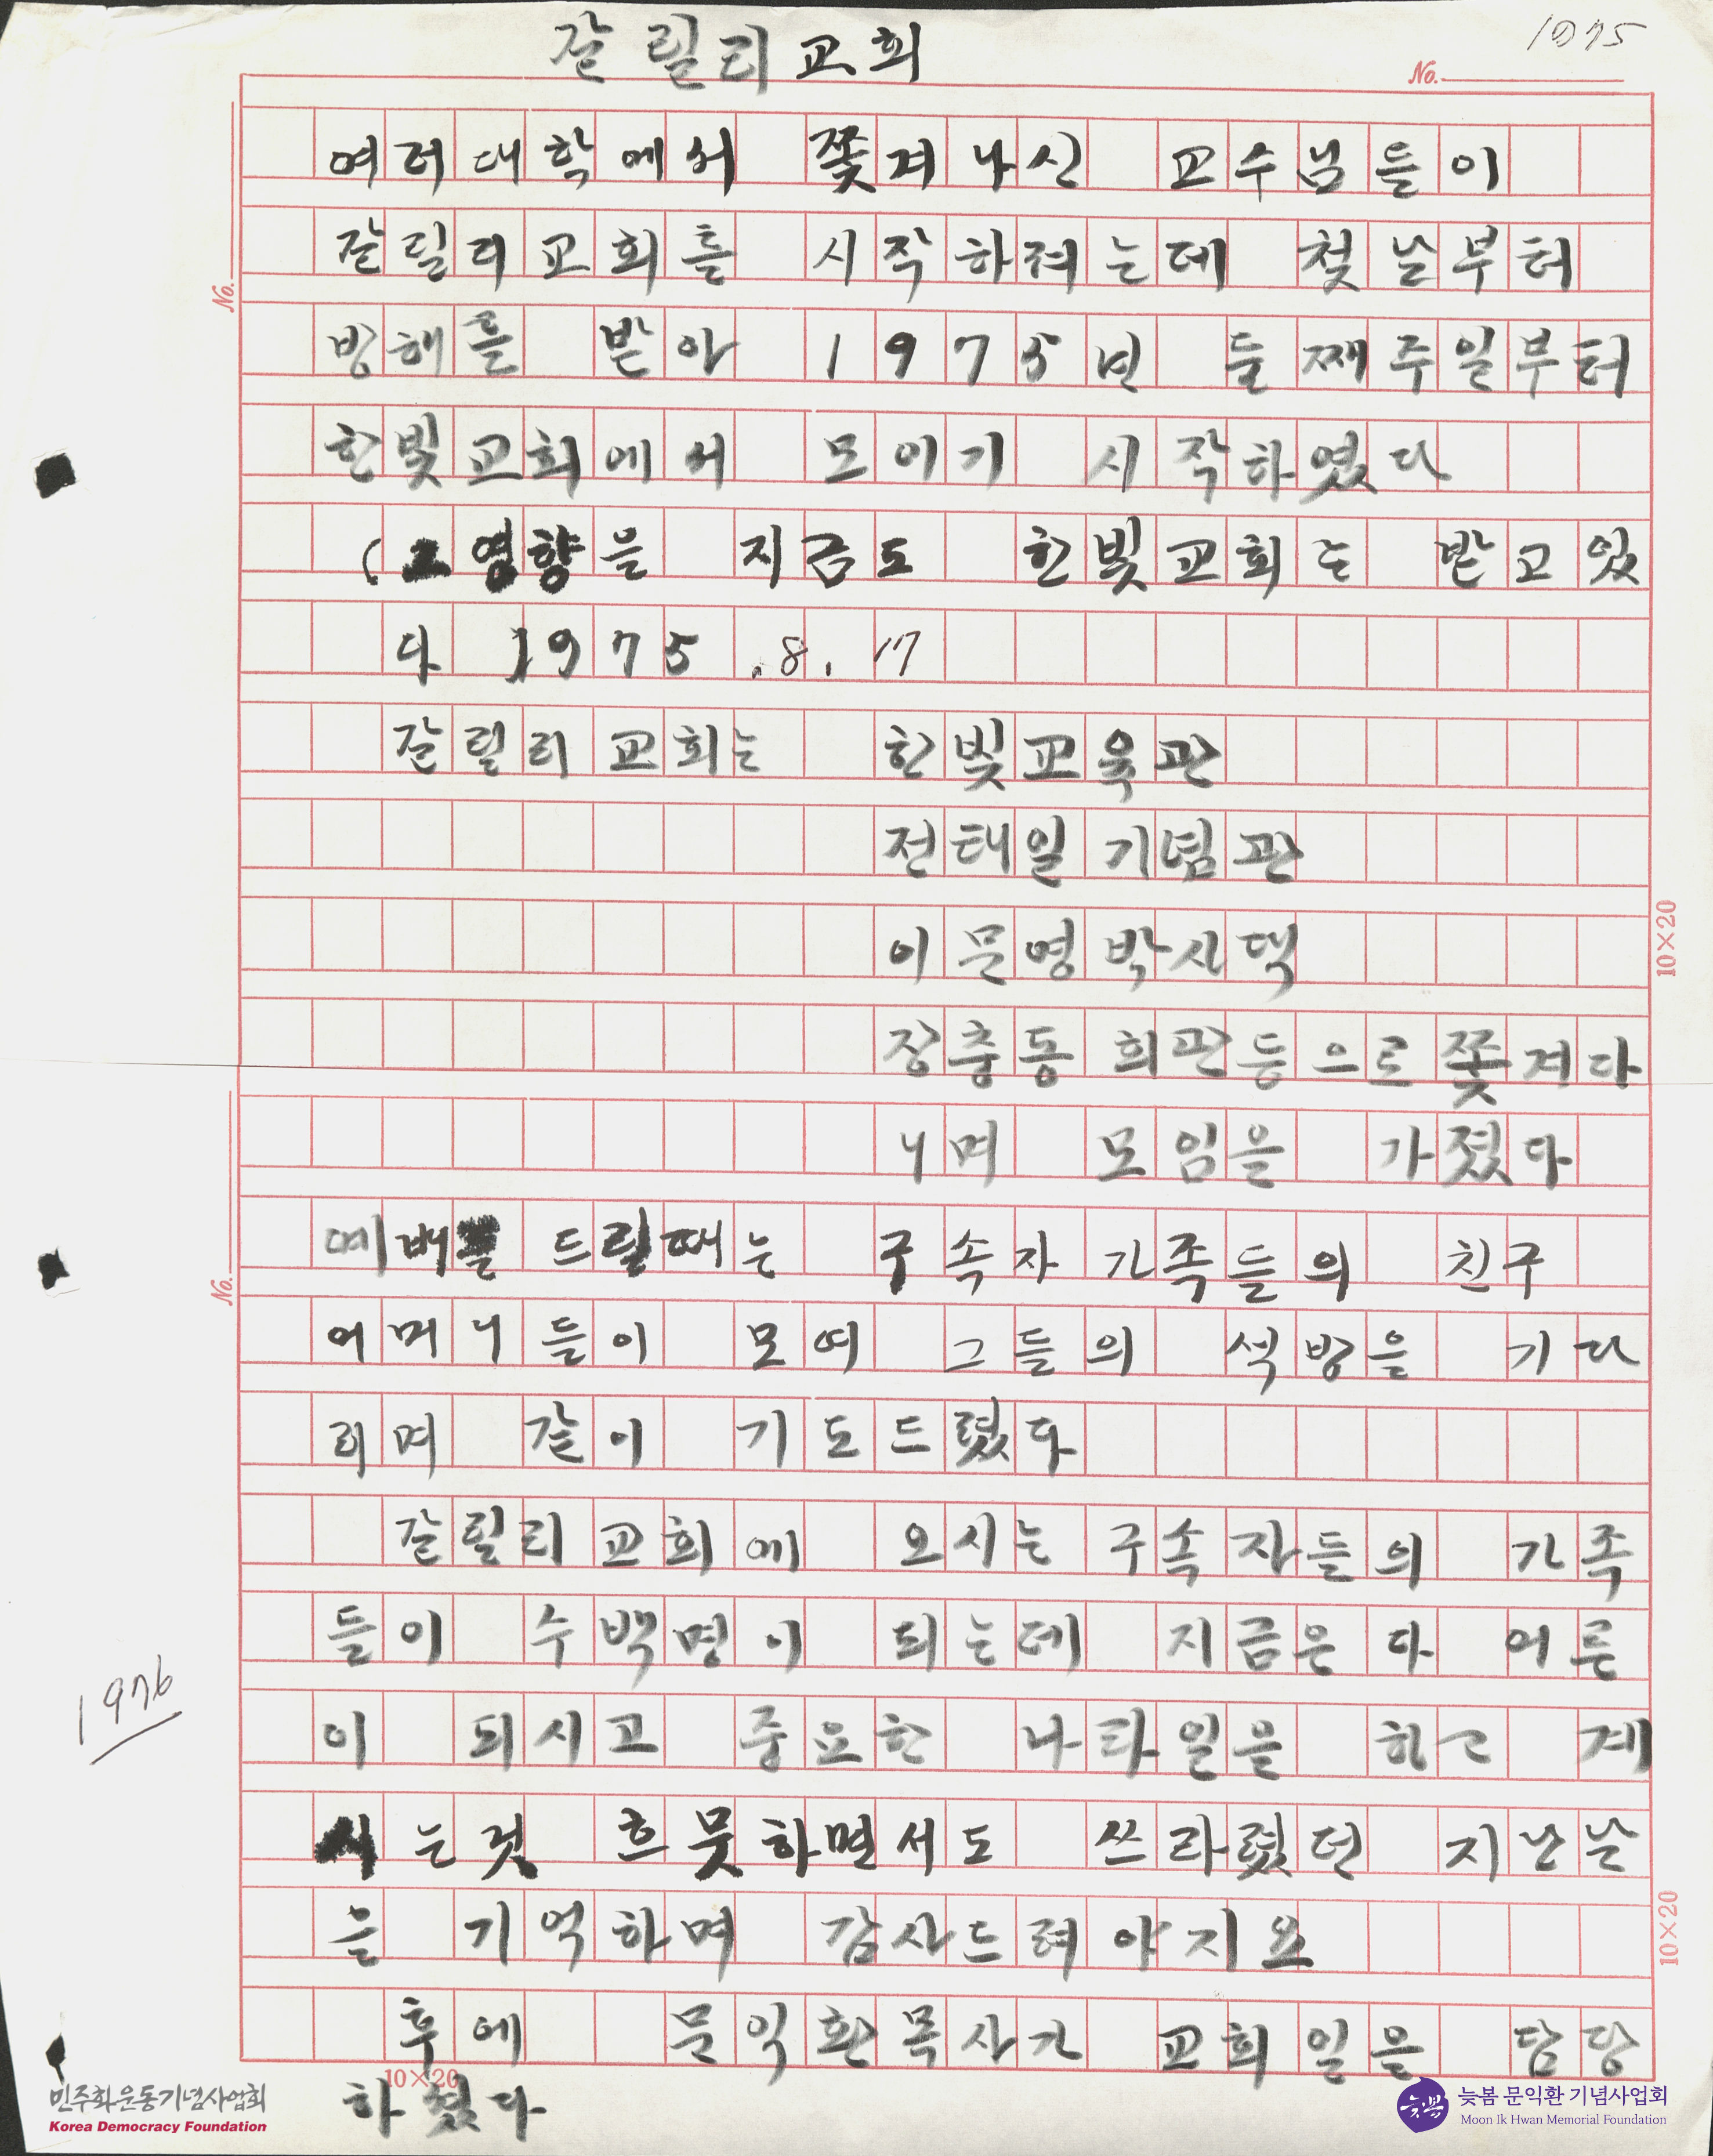 갈릴리교회
1975
No.
여러대학에서 쫓겨나신 교수님들이
갈릴리교회를 시작하려는데 첫날부터
No.
방해를 받아 1975년 둘째주일부터
한빛교회에서 모이기 시작하였다
(그영향을 지금도 한빛교회는 받고있
다 1975.8.17
갈릴리교회는 한빛교육관
전태일기념관
10×20
이문영박사댁
장충동 회관등으로 쫓겨다
니며 모임을 가졌다
예배를 드릴때는 구속자 가족들의 친구
No.
어머니들이 모여 그들의 석방을 기다
리며 같이 기도드렸다
갈릴리교회에 오시는 구속자들의 가족
들이 수백명이 되는데 지금은 다 어른
1976
이 되시고 중요한 나라일을 하고 계
시는것 흐뭇하면서도 쓰라렸던 지난날
을 기억하며 감사드려야지요
10×20
후에 문익환목사가 교회일을 담당
10×20
하셨다
민주화운동기념사업회
Korea Democracy Foundation
늦봄 문익환 기념사업회
Moon Ik Hwan Memorial Foundation
늦봄